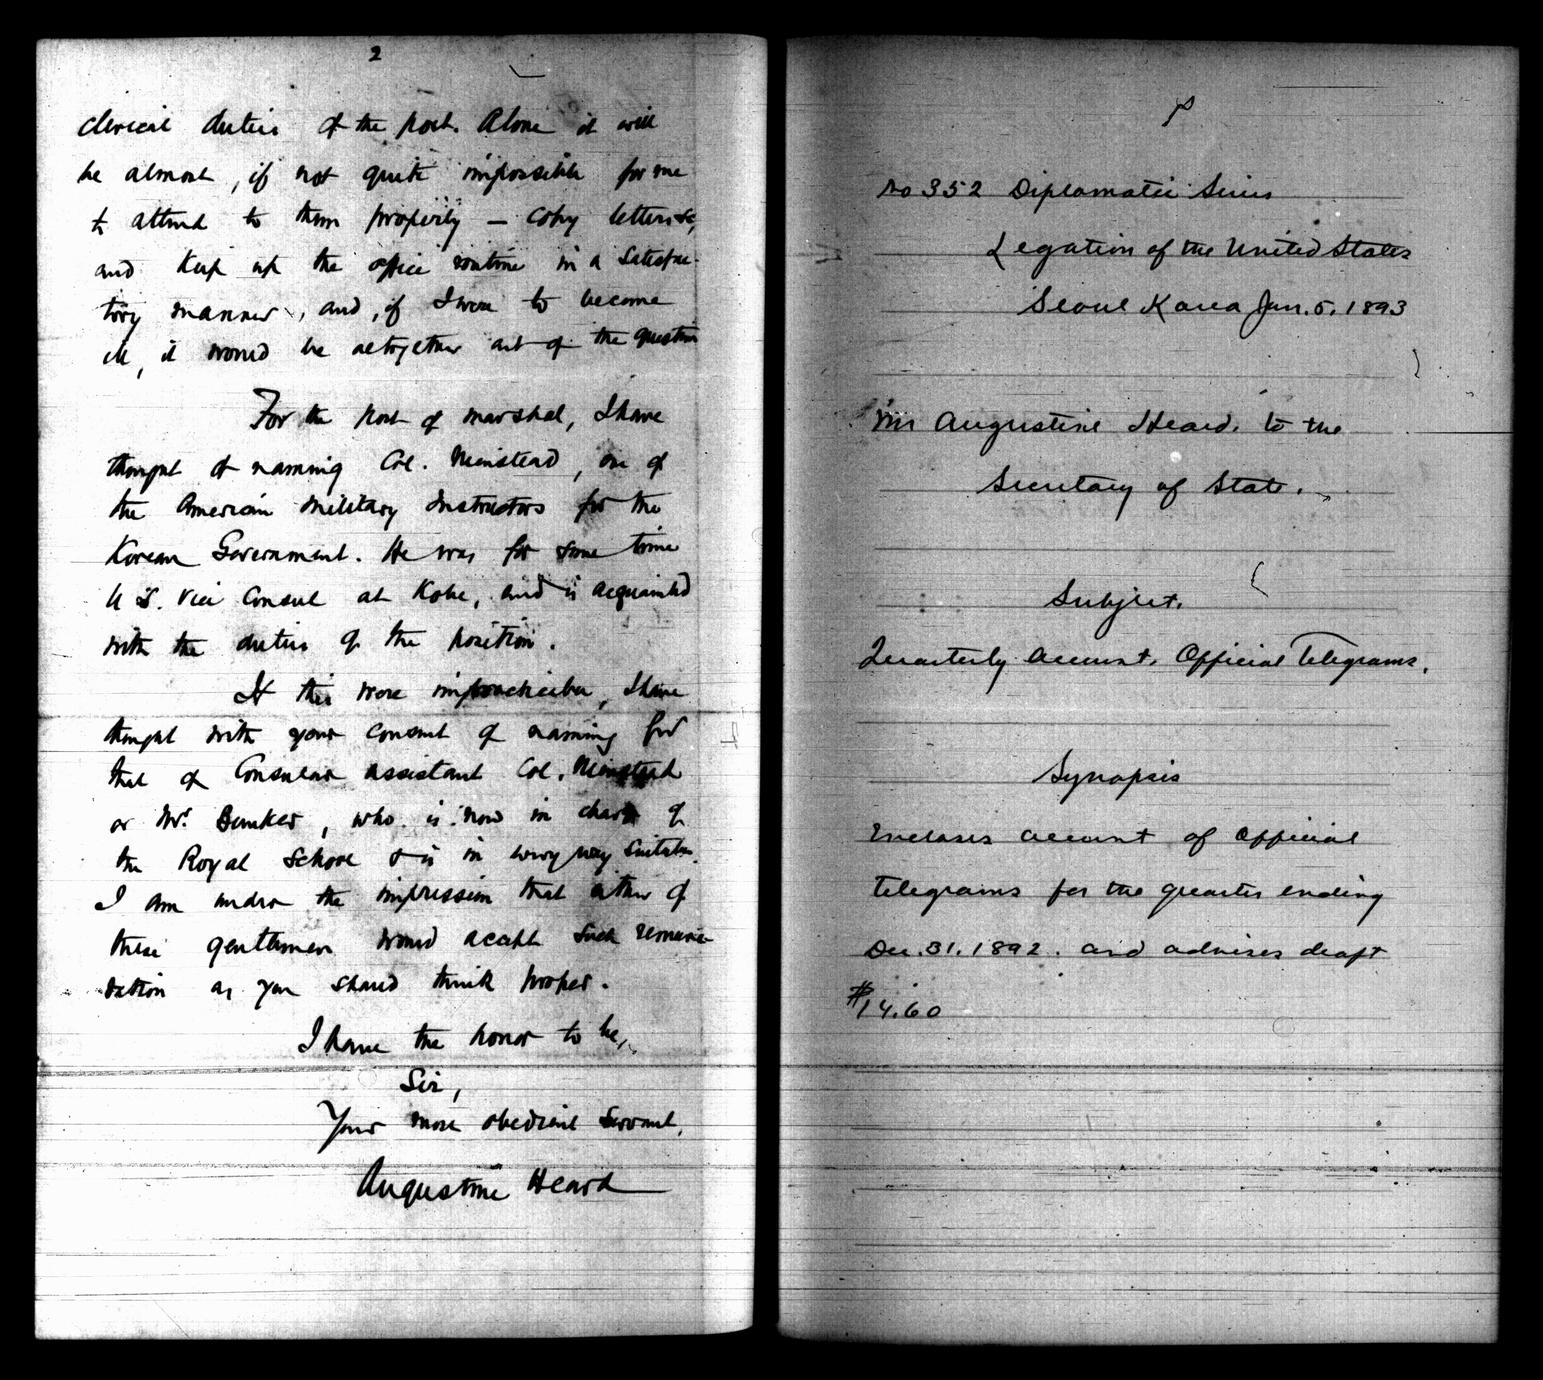 2
clerical duties of the post. Alone it will
be almost, if not quite impossible for me
to attend to them properly — copy letters &c,
and keep up the office routine in a satisfac-
tory manner, and, if I were to become
ill, it would be altogether out of the question
For the post of marshal, I have
thought of naming Col. Nienstead, one of
the American Military Instructors for the
Korean Government. He was for some time
U.S. Vice Consul at Kobe, and is acquainted
with the duties of the position.
If this were impracticable, I have
thought with your consent of naming for
that of Consular assistant Col. Nienstead
or Mr. Bunker, who is now in charge of
the Royal School & is in every way suitable.
I am under the impression that either of
these gentlemen would accept such remune-
ration as you should think proper.
I have the honor to be,
Sir,
Your most obedient servant,
Augustine Heard
No 352 Diplomatic Series
Legation of the United States
Seoul Korea Jan. 5, 1893
Mr Augustine Heard, to the
Secretary of State.
Subject.
Quarterly account, Official Telegrams,
Synopsis
Encloses account of Official
telegrams for the quarter ending
Dec. 31. 1892. and advises draft
$14.60